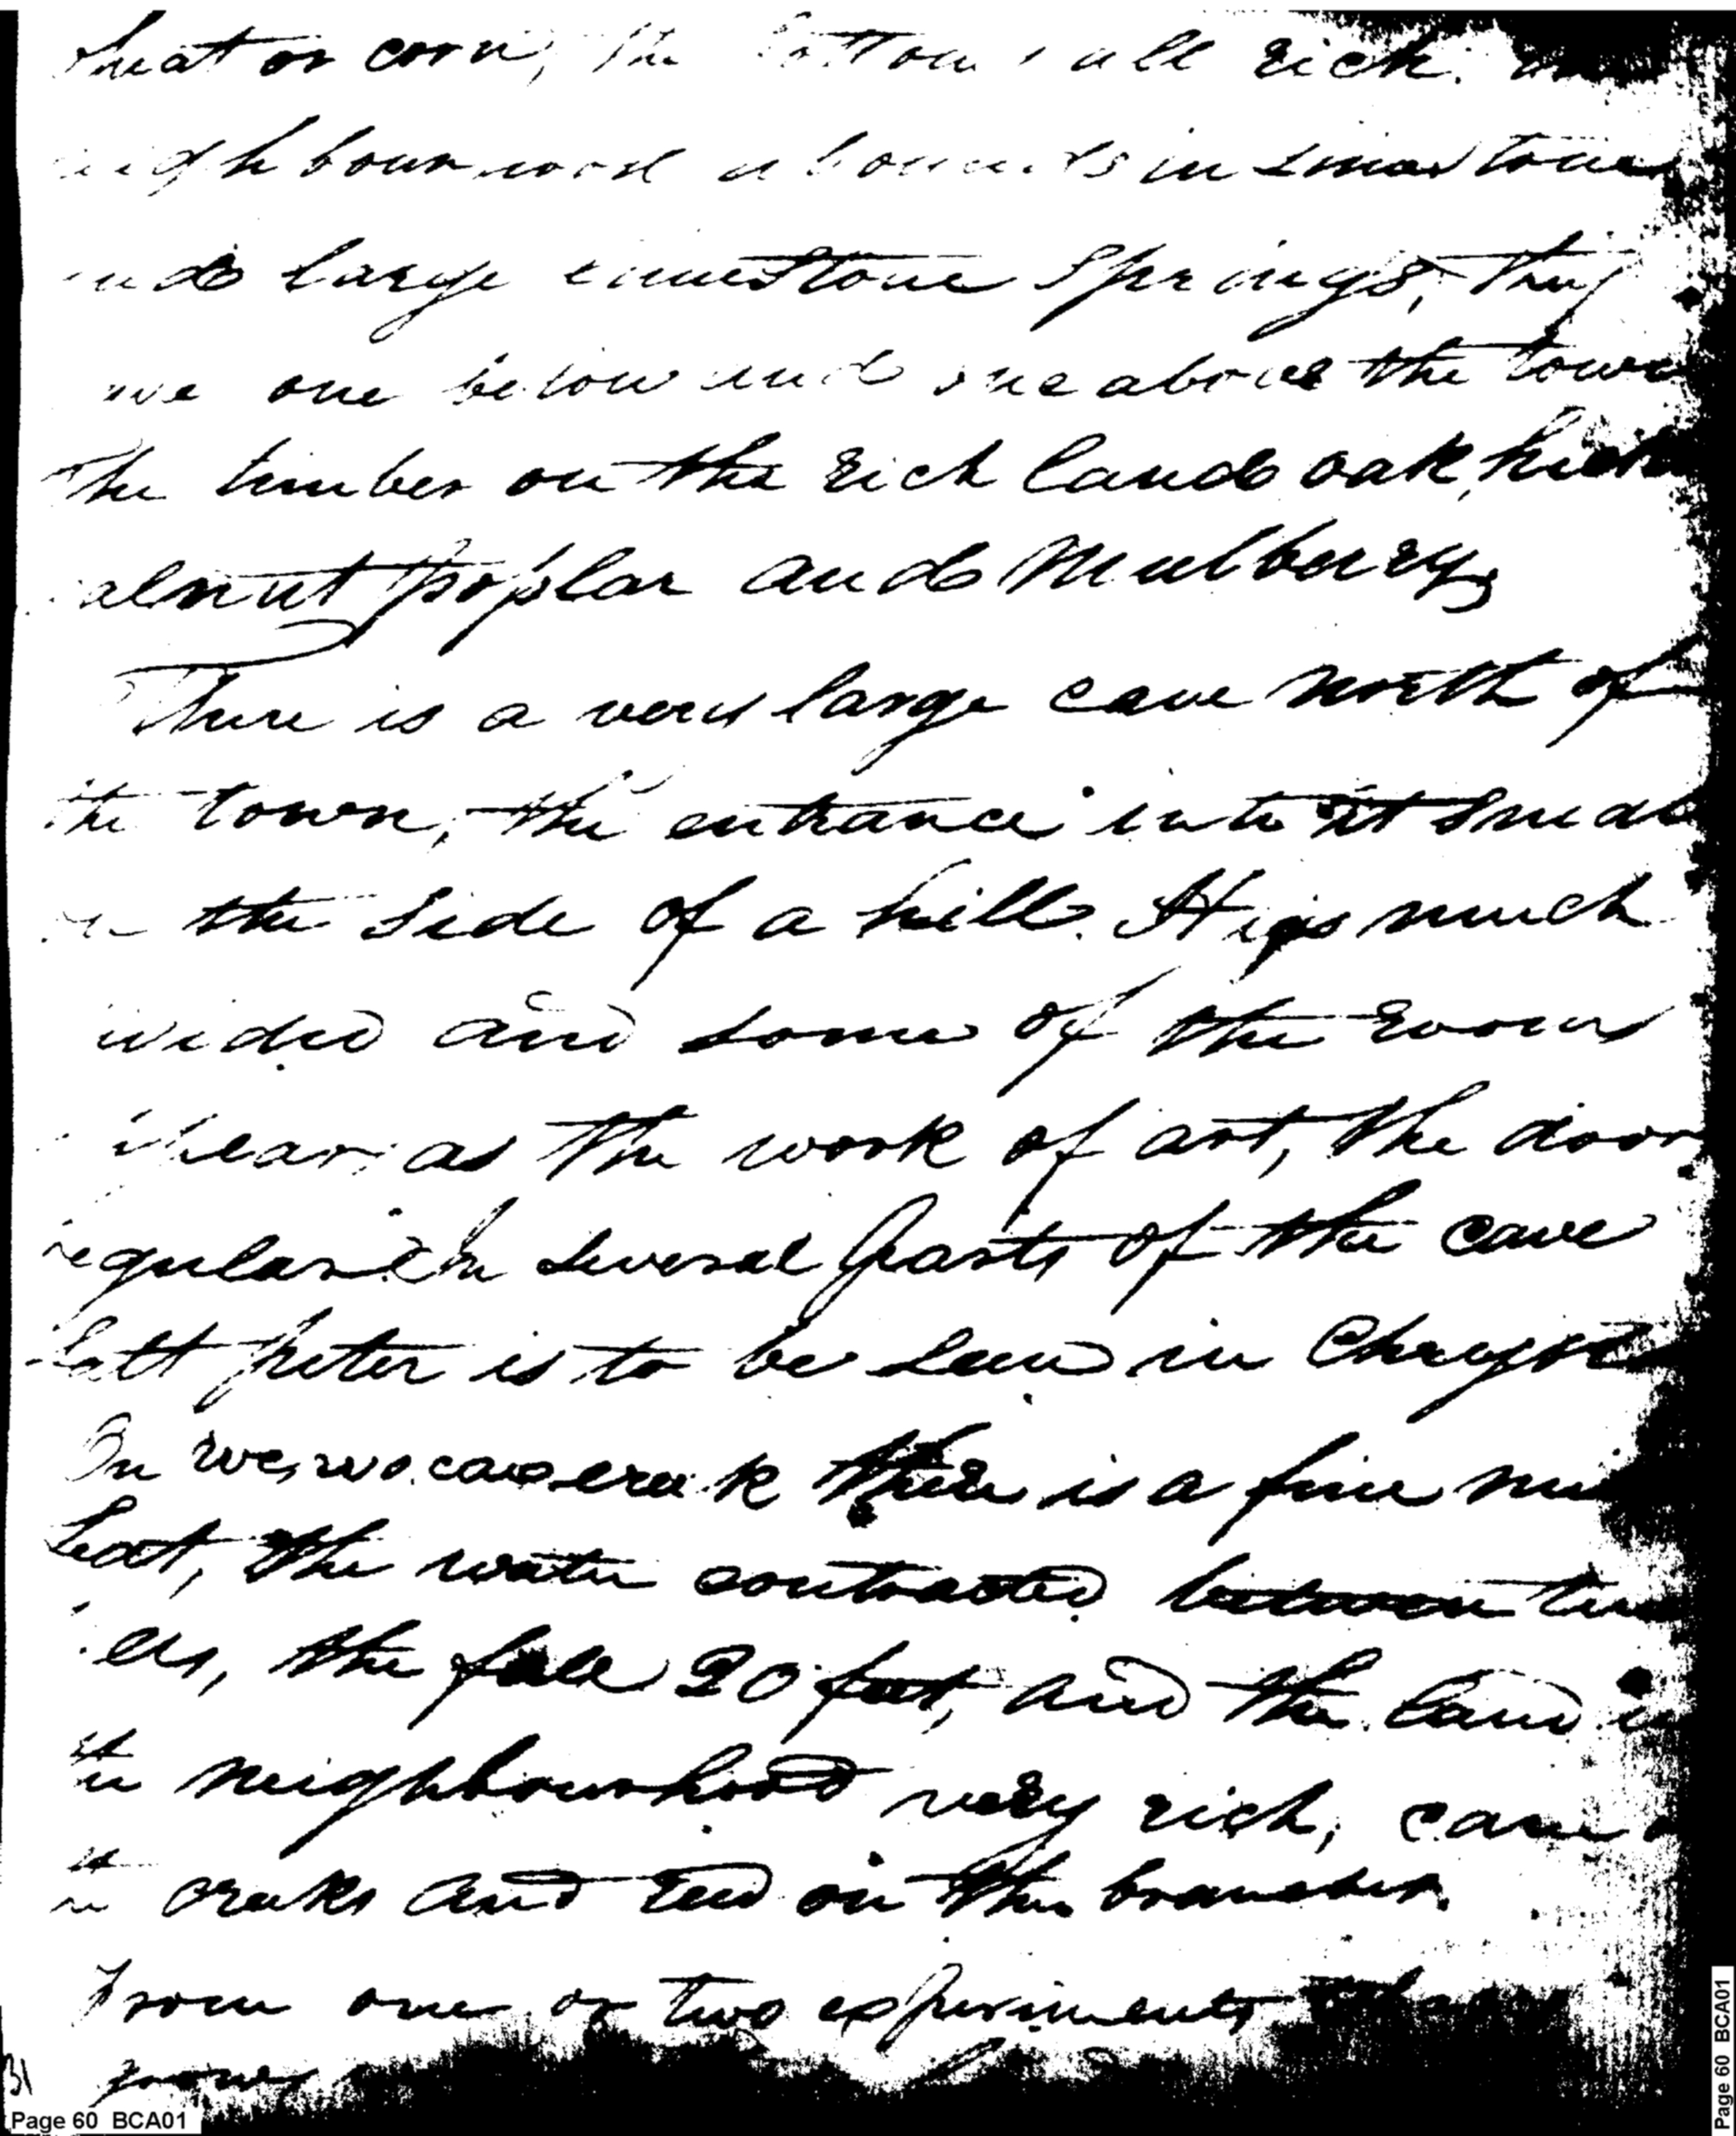 or corn, the bottoms all rich.
abounds in limestone
large limestone springs, they
one below and one above the town
The timber on the rich lands oak,
poplar and Mulberry,
There is a very large cave north of
the town, the entrance into it small
on the side of a hill. It is much
and some of the rooms
as the work of art, the doors
regular in several parts of the cave
Salt peter is to be seen in
On creek there is a fine
Seat, the water contracted between
the fall 20 feet, and the land in
the neighbourhood very rich, cane
creeks and reed on the branches.
From one or two experiments
31
Page 60 BCA01
Page 60 BCA01